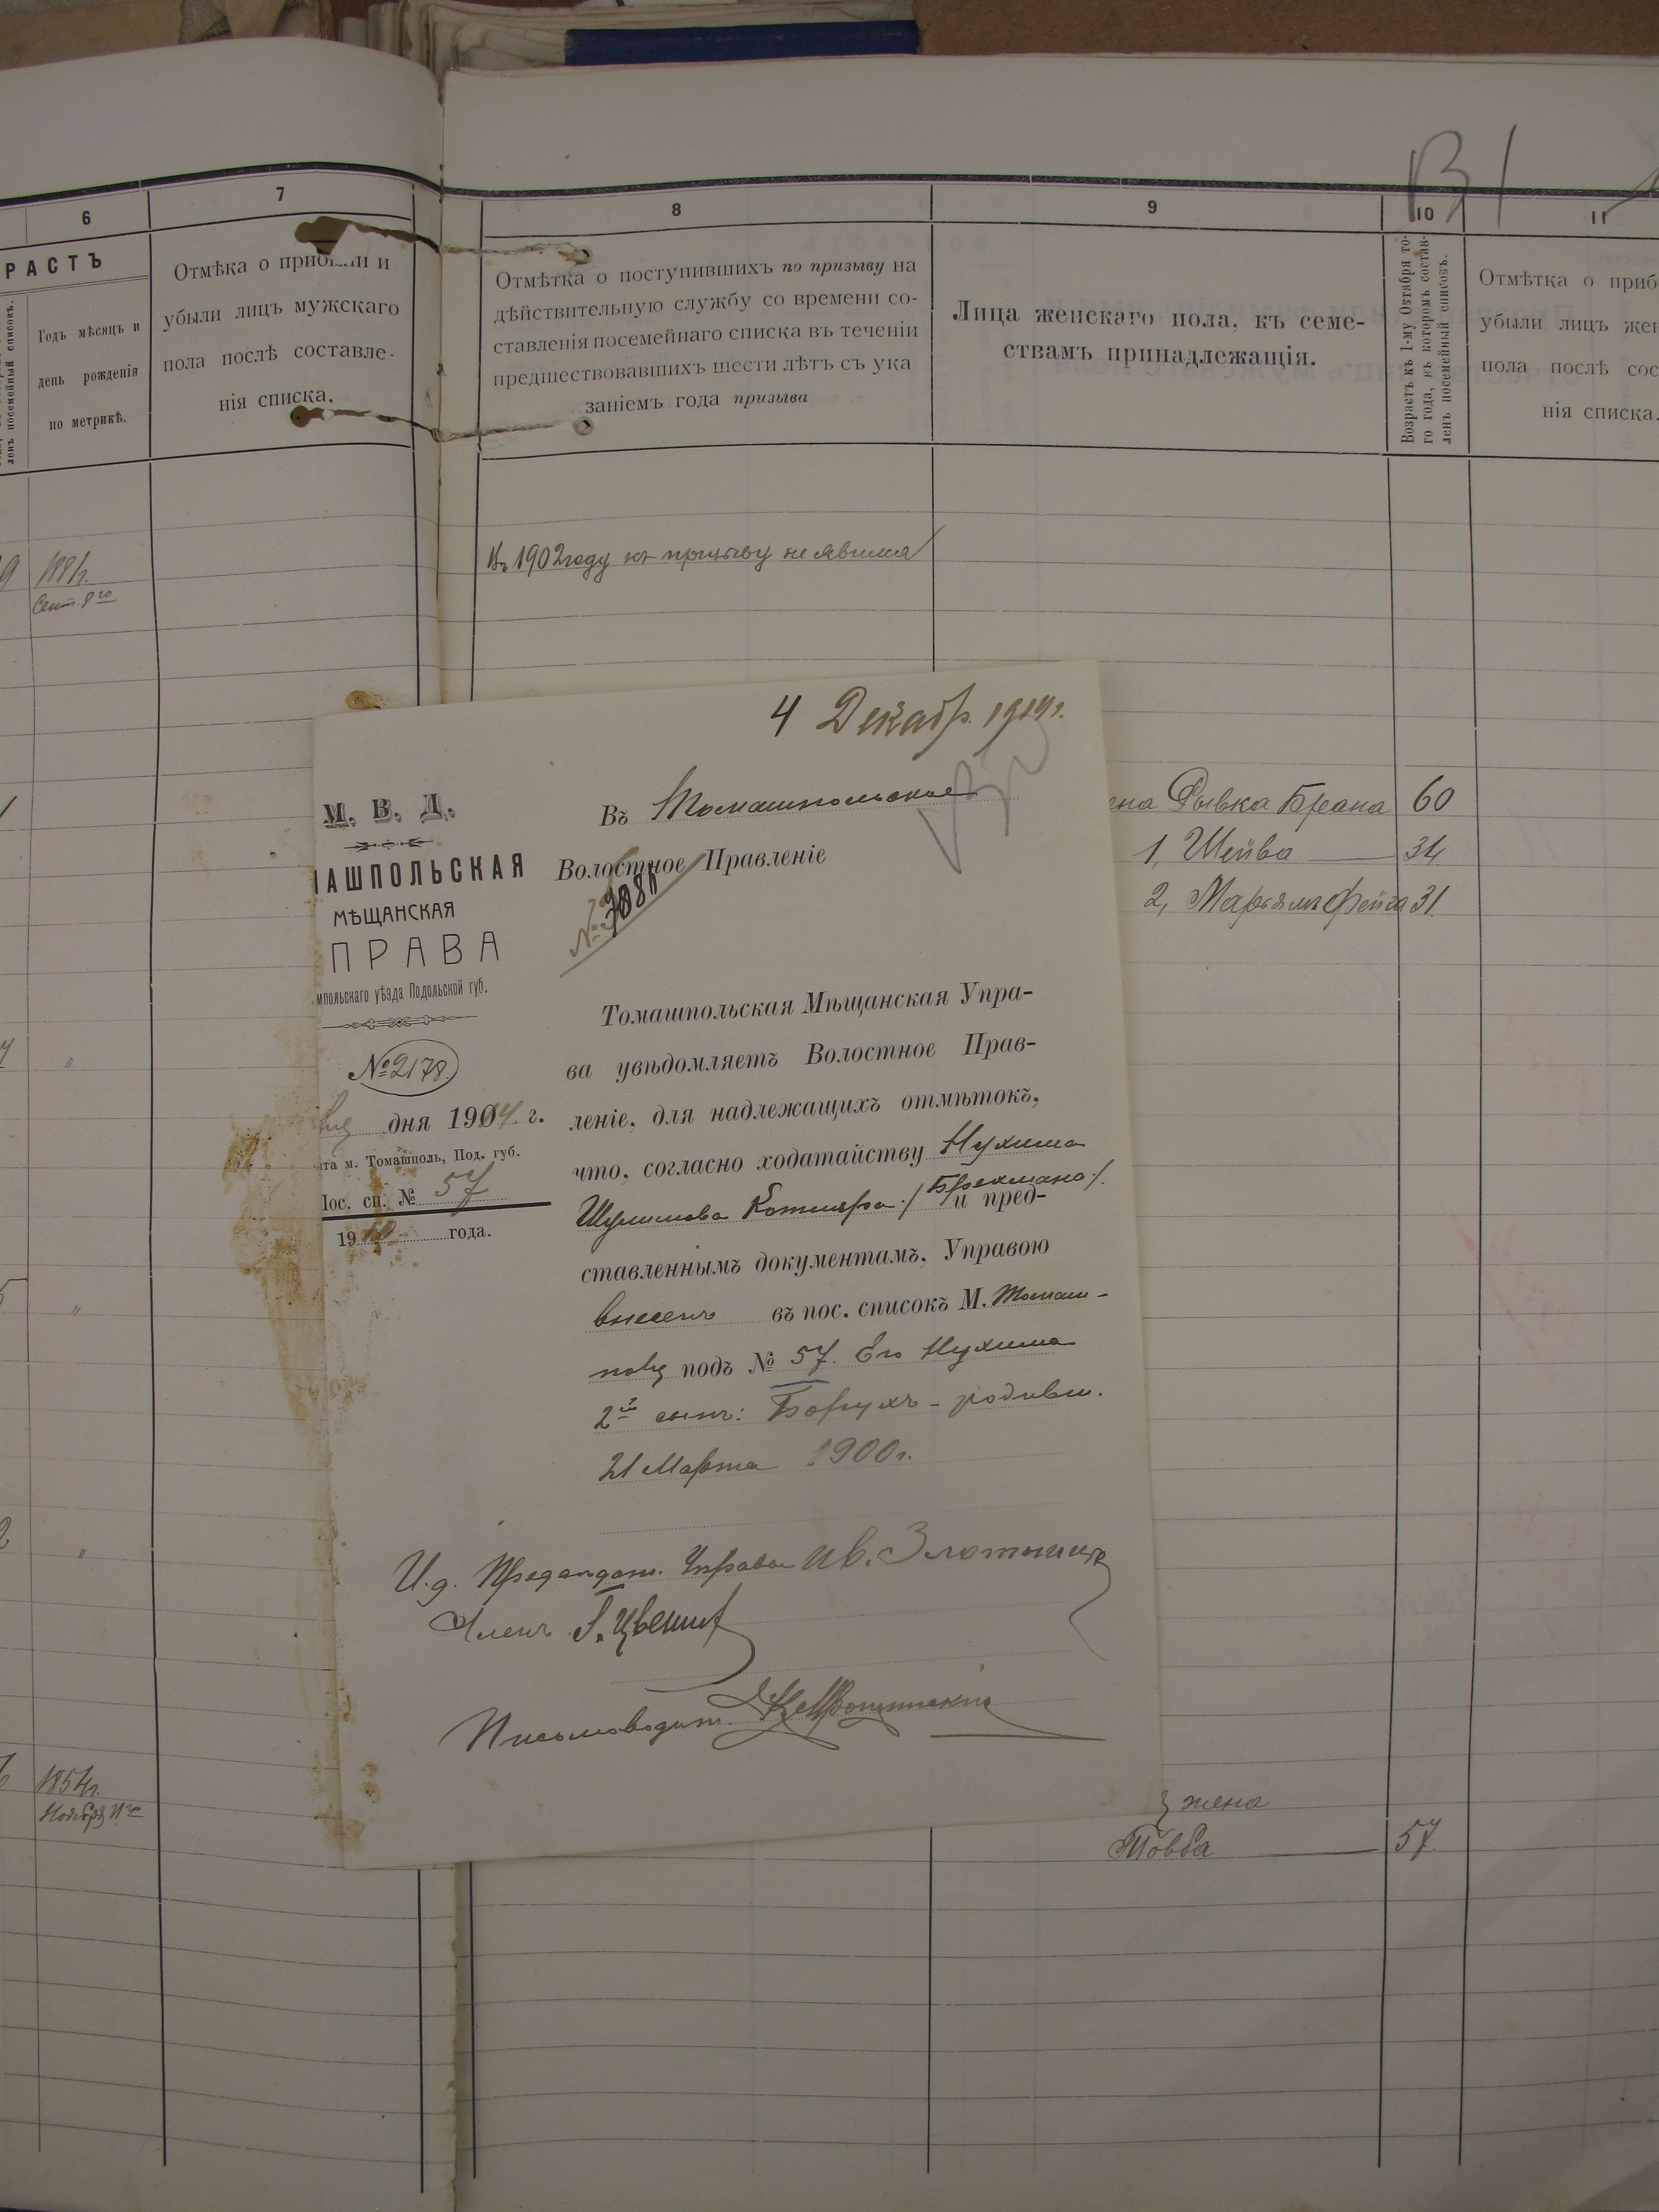 6
7
8
9
10
11
РАСТЪ
Годъ мѣсяцъ и
день рожденія
по метрикѣ.
Отмѣка о прибыли и
убыли лицъ мужскаго
пола послѣ составле-
нія списка.
Отмѣтка о поступившихъ по призыву на
дѣйствительную службу со времени со-
ставленія посемейнаго списка въ теченіи
предшествовавшихъ шести лѣтъ съ ука
заніемъ года призыва
Лица женскаго пола, къ семе-
ствамъ принадлежащія.
Возрастъ къ 1-му Октября то-
го года, въ которомъ состав-
ленъ посемейный списокъ.
Отмѣтка о приб
убыли лицъ жен
пола послѣ сос
нія списка.
9
1881г.
Сент. 8го
Въ 1902 году къ призыву не явился
4 Декабр. 1914г.
М. В. Д.
АШПОЛЬСКАЯ
МѢЩАНСКАЯ
ПРАВА
мпольскаго уѣзда Подольской губ.
№ 2178.
дня 1914 г.
та м. Томашполь, Под. губ.
Пос. сп. № 57
1910 года.
Въ Томашпольское
Волостное Правленіе
Томашпольская Мѣщанская Упра-
ва увѣдомляетъ Волостное Прав-
леніе, для надлежащихъ отмѣтокъ,
что, согласно ходатайству Нухима
Шулимова Котляра /Брехмана/. и пред-
ставленнымъ документамъ, Управою
внесенъ въ пос. списокъ М. Томаш-
полѣ подъ № 57. Его Нухима
2й сынъ: Борухъ - родивш.
21 Марта 1900г.
И.д. Предсѣдат. Управы Ив.
Членъ
Письмоводит.
Рывка Бреана 60
1, Шейва 34
2, Марьямъ Фейга 31.
1854г.
Ноября 11го
жена
Товба 57